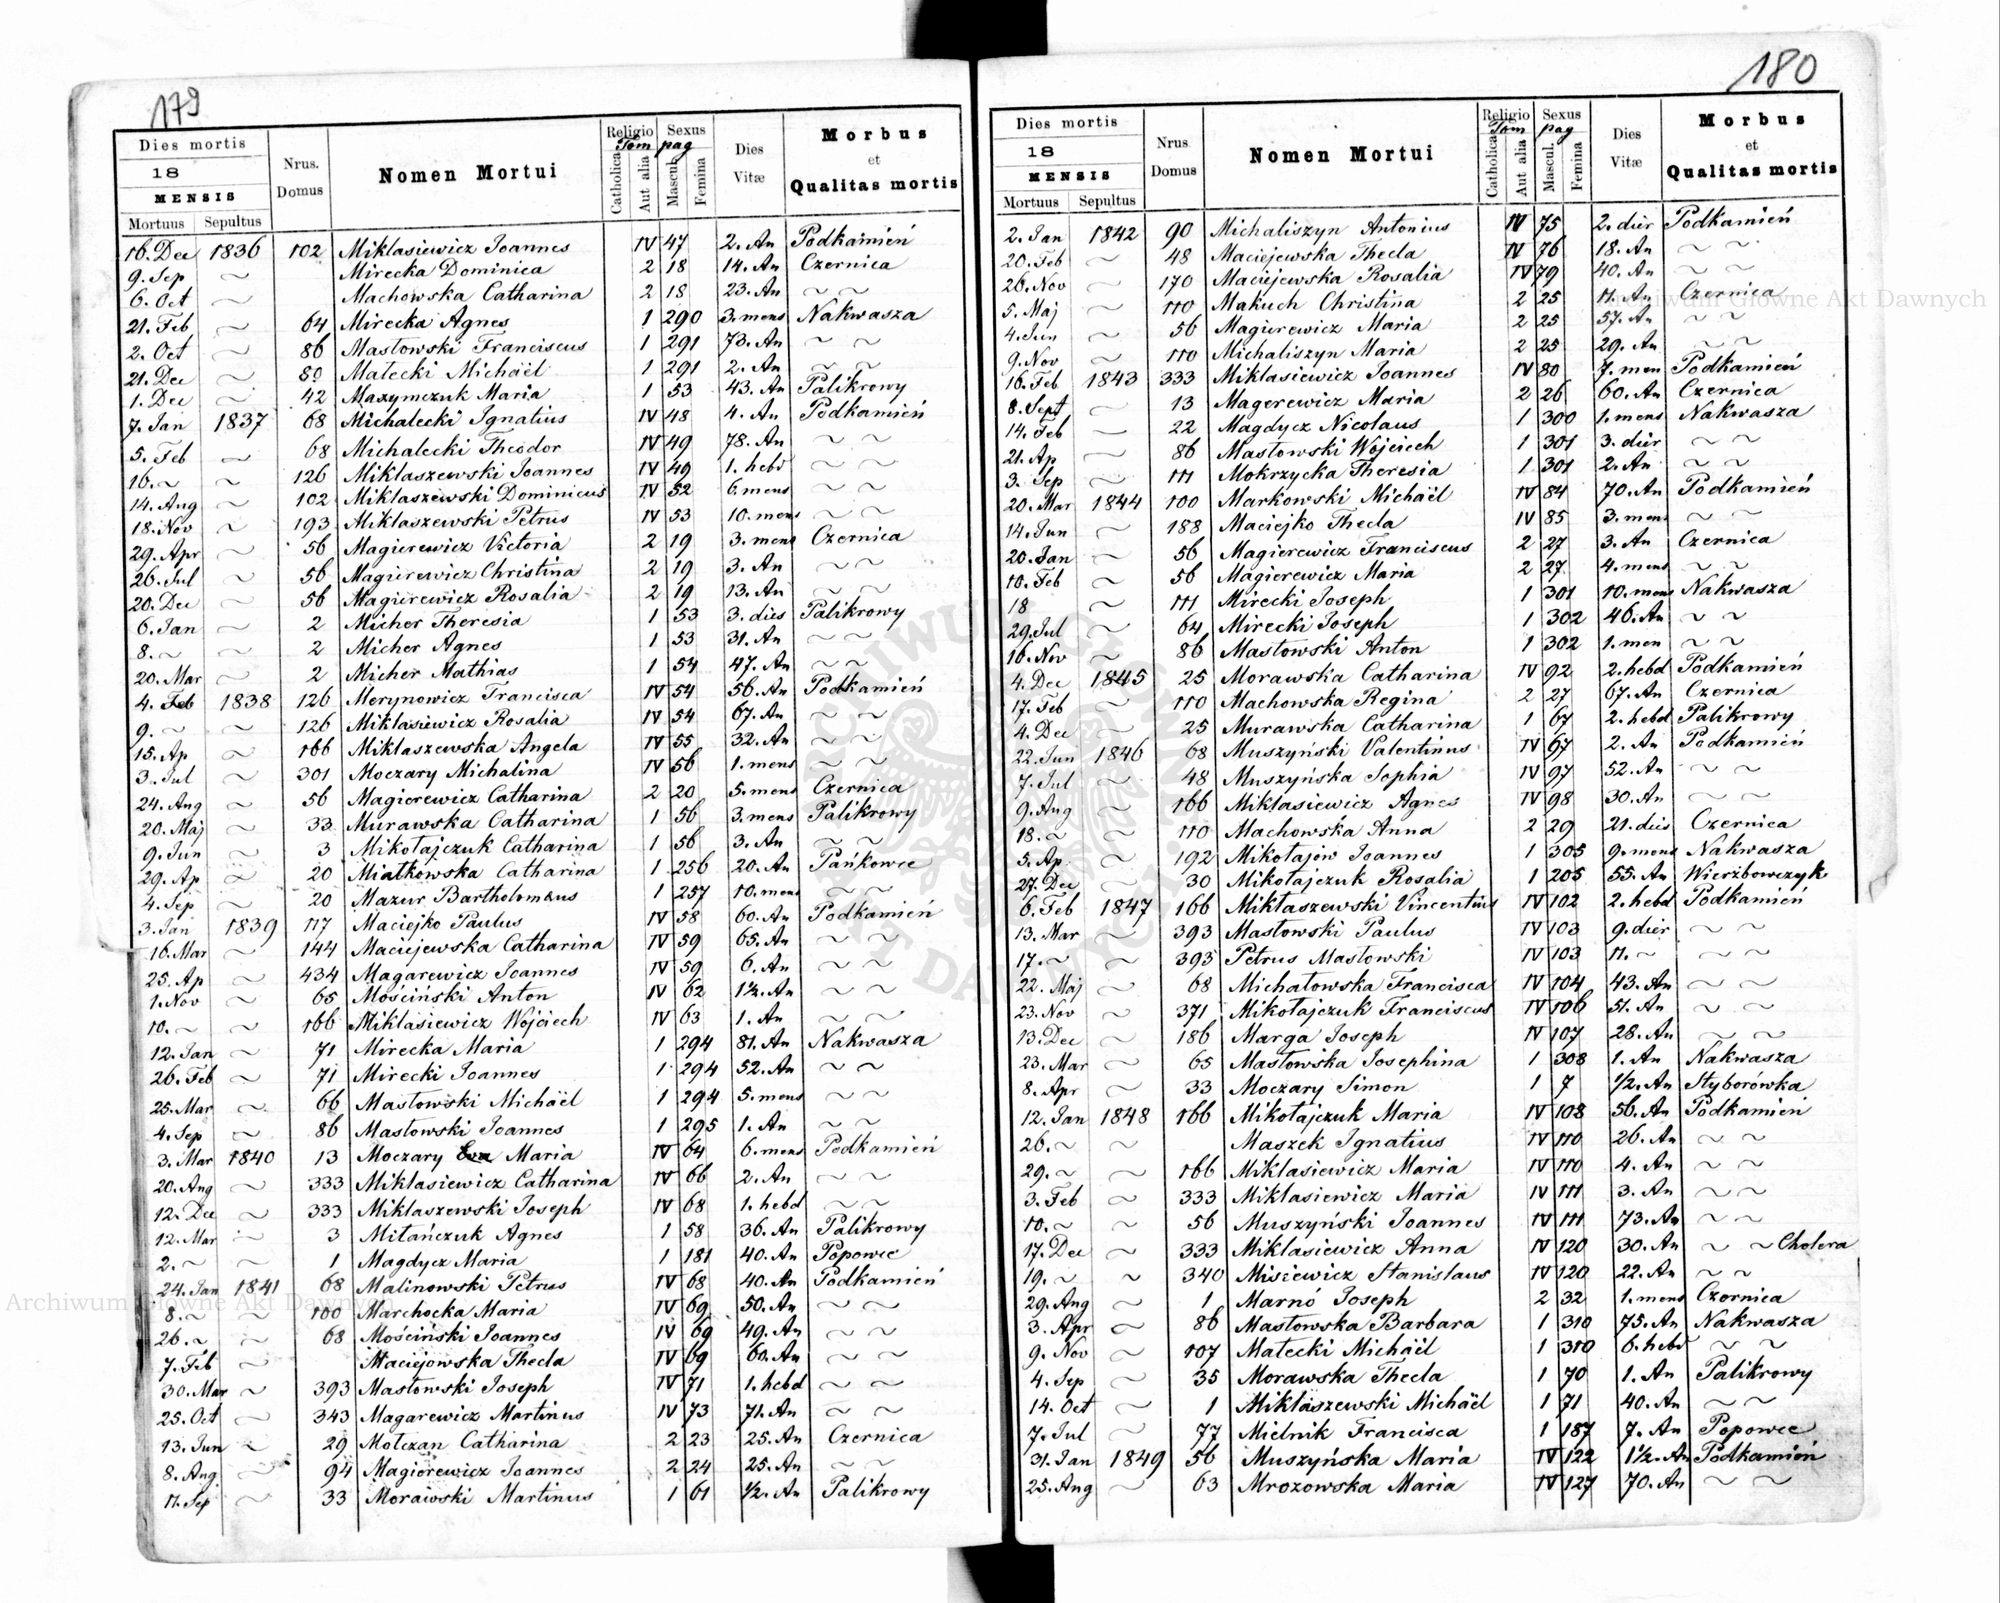 179
Dies mortis
18
MENSIS
Mortuus Sepultus
Nrus. Domus
Nomen Mortui
Religio Tom
Catholica Aut alia
Sexus pag
Mascul. Femina
Dies Vitæ
Morbus et Qualitas mortis
16. Dec 1836 102 Miklasiewicz Joannes IV 47 2. An Podkamień
9. Sep ~ Mirecka Dominica 2 18 14. An Czernica
6. Oct ~ Machowska Catharina 2 18 23. An ~ ~
21. Feb ~ 64 Mirecka Agnes 1 290 3. mens Nakwasza
2. Oct ~ 86 Masłowski Franciscus 1 291 73. An ~ ~
21. Dec ~ 80 Małecki Michäel 1 291 2. An ~ ~
1. Dec ~ 42 Maxymczuk Maria 1 53 43. An Palikrowy
7. Jan 1837 68 Michalecki Ignatius IV 48 4. An Podkamień
5. Feb ~ 68 Michalecki Theodor IV 49 78. An ~ ~
16. ~ ~ 126 Miklaszewski Joannes IV 49 1. hebd ~ ~
14. Aug ~ 102 Miklaszewski Dominicus IV 52 6. mens ~ ~
18. Nov ~ 193 Miklaszewski Petrus IV 53 10. mens ~ ~
29. Apr ~ 56 Magierewicz Victoria 2 19 3. mens Czernica
26. Jul ~ 56 Magierewicz Christina 2 19 3. An ~ ~
20. Dec ~ 56 Magierewicz Rosalia 2 19 13. An ~ ~
6. Jan ~ 2 Micher Theresia 1 53 3. dies Palikrowy
8. ~ ~ 2 Micher Agnes 1 53 31. An ~ ~
20. Mar ~ 2 Micher Mathias 1 54 47. An ~ ~
4. Feb 1838 126 Merynowicz Francisca IV 54 56. An Podkamień
9. ~ ~ 126 Miklasiewicz Rosalia IV 54 67. An ~ ~
15. Ap ~ 166 Miklaszewska Angela IV 55 32. An ~ ~
3. Jul ~ 301 Moczary Michalina IV 56 1. mens ~ ~
24. Aug ~ 56 Magierewicz Catharina 2 20 5. mens Czernica
20. Maj ~ 33 Murawska Catharina 1 56 3. mens Palikrowy
9. Jun ~ 3 Mikołajczuk Catharina 1 56 3. An ~ ~
29. Ap ~ 20 Miatkowska Catharina 1 256 20. An Pańkowce
4. Sep ~ 20 Mazur Bartholomæus 1 257 10. mens ~ ~
3. Jan 1839 117 Maciejko Paulus IV 58 60. An Podkamień
16. Mar ~ 144 Maciejewska Catharina IV 59 65. An ~ ~
25. Ap ~ 434 Magarewicz Joannes IV 59 6. An ~ ~
1. Nov ~ 65 Mościński Anton IV 62 1½. An ~ ~
10. ~ ~ 166 Miklasiewicz Wojciech IV 63 1. An ~ ~
12. Jan ~ 71 Mirecka Maria 1 294 81. An Nakwasza
26. Feb ~ 71 Mirecki Joannes 1 294 52. An ~ ~
25. Mar ~ 66 Masłowski Michäel 1 294 5. mens ~ ~
4. Sep ~ 86 Masłowski Joannes 1 295 1. An ~ ~
3. Mar 1840 13 Moczary Eva Maria IV 64 6. mens Podkamień
20. Aug ~ 333 Miklasiewicz Catharina IV 66 2. An ~ ~
12. Dec ~ 333 Miklaszewski Joseph IV 68 1. hebd ~ ~
12. Mar ~ 3 Mitańczuk Agnes 1 58 36. An Palikrowy
2. ~ ~ 1 Magdycz Maria 1 181 40. An Popowce
24. Jan 1841 68 Malinowski Petrus IV 68 40. An Podkamień
8. ~ ~ 100 Marchocka Maria IV 69 50. An ~ ~
26. ~ ~ 68 Mościński Joannes IV 69 49. An ~ ~
7. Feb Maciejowska Thecla IV 69 60. An ~ ~
30. Mar ~ 393 Masłowski Joseph IV 71 1. hebd ~ ~
25. Oct ~ 343 Magarewicz Martinus IV 73 71. An ~ ~
13. Jun ~ 29 Motczan Catharina 2 23 25. An Czernica
8. Aug ~ 94 Magierewicz Joannes 2 24 25. An ~ ~
11. Sep ~ 33 Morawski Martinus 1 61 ½. An Palikrowy
180
Dies mortis
18
MENSIS
Mortuus Sepultus
Nrus Domus
Nomen Mortui
Religio Tom
Catholica Aut alia
Sexus pag
Mascul. Femina
Dies Vitæ
Morbus et Qualitas mortis
2. Jan 1842 90 Michaliszyn Antonius IV 75 2. dier Podkamień
20. Feb ~ 48 Maciejewska Thecla IV 76 18. An ~ ~
26. Nov ~ 170 Maciejewska Rosalia IV 79 40. An ~ ~
5. Maj ~ 110 Makuch Christina 2 25 11. An Czernica
4. Jun ~ 56 Magierewicz Maria 2 25 57. An ~ ~
9. Nov ~ 110 Michaliszyn Maria 2 25 29. An ~ ~
16. Feb 1843 333 Miklasiewicz Joannes IV 80 7. men Podkamień
8. Sept ~ 13 Magerewicz Maria 2 26 60. An Czernica
14. Feb ~ 22 Magdycz Nicolaus 1 300 1. mens Nakwasza
21. Ap ~ 86 Masłowski Wojciech 1 301 3. dier ~ ~
3. Sep ~ 111 Mokrzycka Theresia 1 301 2. An ~ ~
20. Mar 1844 100 Markowski Michäel IV 84 70. An Podkamień
14. Jun ~ 188 Maciejko Thecla IV 85 3. mens ~ ~
20. Jan ~ 56 Magierewicz Franciscus 2 27 3. An Czernica
10. Feb ~ 56 Magierewicz Maria 2 27 4. mens ~ ~
18 ~ 111 Mirecki Joseph 1 301 10. mens Nakwasza
29. Jul ~ 64 Mirecki Joseph 1 302 46. An ~ ~
16. Nov ~ 86 Masłowski Anton 1 302 1. men ~ ~
4. Dec 1845 25 Morawska Catharina IV 92 2. hebd Podkamień
17. Feb ~ 110 Machowska Regina 2 27 67. An Czernica
4. Dec ~ 25 Murawska Catharina 1 67 2. hebd Palikrowy
22. Jun 1846 68 Muszyński Valentinus IV 97 2. An Podkamień
7. Jul ~ 48 Muszyńska Sophia IV 97 52. An ~ ~
9. Aug ~ 166 Miklasiewicz Agnes IV 98 30. An ~ ~
18. ~ ~ 110 Machowska Anna 2 29 21. dies Czernica
5. Ap ~ 192 Mikołajów Joannes 1 305 9. mens Nakwasza
27. Dec ~ 30 Mikołajczuk Rosalia 1 205 55. An Wierzbowczyk
6. Feb 1847 166 Miktaszewski Vincentius IV 102 2. hebd Podkamień
13. Mar ~ 393 Masłowski Paulus IV 103 9. dier ~ ~
17. ~ ~ 393 Petrus Masłowski IV 103 11. ~ ~ ~
22. Maj ~ 68 Michałowska Francisca IV 104 43. An ~ ~
23. Nov ~ 371 Mikołajczuk Franciscus IV 106 51. An ~ ~
13. Dec ~ 186 Marga Joseph IV 107 28. An ~ ~
23. Mar ~ 65 Masłowska Josephina 1 308 1. An Nakwasza
8. Apr ~ 33 Moczary Simon 1 7 ½. An Styborówka
12. Jan 1848 166 Mikołajczuk Maria IV 108 56. An Podkamień
26. ~ ~ Maszek Ignatius IV 110 26. An ~ ~
29. ~ ~ 166 Miklasiewicz Maria IV 110 4. An ~ ~
3. Feb ~ 333 Miklasiewicz Maria IV 111 3. An ~ ~
10. ~ ~ 56 Muszyński Joannes IV 111 73. An ~ ~
17. Dec ~ 333 Miklasiewicz Anna IV 120 30. An ~ ~ Cholera
19. ~ ~ 340 Misiewicz Stanislaus IV 120 22. An ~ ~
29. Aug ~ 1 Marnó Joseph 2 32 1. mens Czernica
3. Apr ~ 86 Masłowska Barbara 1 310 75. An Nakwasza
9. Nov ~ 107 Małecki Michäel 1 310 6. hebd ~ ~
4. Sep ~ 35 Morawska Thecla 1 70 1. An Palikrowy
14. Oct ~ 1 Miklaszewski Michäel 1 71 40. An ~ ~
7. Jul ~ 77 Mielnik Francisca 1 187 7. An Popowce
31. Jan 1849 56 Muszyńska Maria IV 122 1½. An Podkamień
25. Aug ~ 63 Mrozowska Maria IV 127 70. An ~ ~
Archiwum Główne Akt Dawnych
Archiwum Główne Akt Dawnych
ARCHIWUM GŁÓWNE AKT DAWNYCH